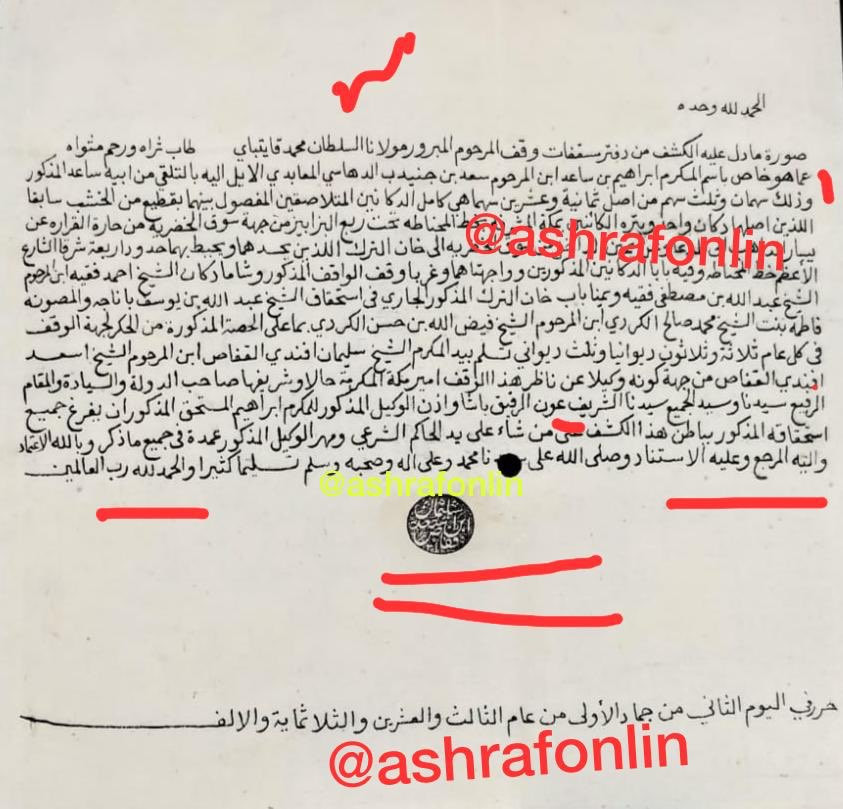 الحمد لله وحده
صورة ما دل عليه الكشف من دفتر مسقفات وقف المرحوم المبرور مولانا السلطان محمد قايتباي طاب ثراه ورحم مثواه
عما هو خاص باسم المكرم ابراهيم بن ساعد ابن المرحوم سعد بن جنيدب الدهاسي المعابدي الايل اليه بالتلقي من ابيه ساعد المذكور
وذلك سهمان وثلث سهم من اصل ثمانية وعشرين سهما هي كامل الدكانين المتلاصقين المفصول بينهما بقطيع من الخشب سابقا
اللذين اصلهما دكان واحد وبتره الكائنين بمكة المشرفة بخط الحناطه تحت ربع البزابيز من جهة سوق الخضرية من حارة القراره عن
يسار الى خان الترك اللذين يحدهما ويحيط بهما حدود اربعة شرقا الشارع
الاعظم خط الحناطه وفيه بابا الدكانين المذكورين وواجهتاهما وغربا وقف الواقف المذكور وشاما دكان الشيخ احمد فقيه ابن المرحوم
الشيخ عبد الله بن مصطفى فقيه ويمنا باب خان الترك المذكور الجاري في استحقاق الشيخ عبد الله بن يوسف باناجه والمصونه
فاطمه بنت الشيخ محمد صالح الكردي ابن المرحوم الشيخ فيض الله بن حسن الكردي بما على الحصة المذكورة من الحكر لجهة الوقف
في كل عام ثلاثة وثلاثون ديوانيا وثلث ديواني تسلم بيد المكرم الشيخ سليمان افندي القفاص ابن المرحوم الشيخ اسعد
افندي القفاص من جهة كونه وكيلا عن ناظر هذا الوقف امير مكة المكرمة حالا وشريفها صاحب الدولة والسيادة والمقام
الرفيع سيدنا وسيد الجميع سيدنا الشريف عون الرفيق باشا واذن الوكيل المذكور للمكرم ابراهيم المستحق المذكور ان يفرغ جميع
استحقاقه المذكور بباطن هذا الكشف على من شاء على يد الحاكم الشرعي ومهر الوكيل المذكور عمدة في جميع ما ذكر وبالله الاعتماد
واليه المرجع وعليه الاستناد وصلى الله على سيدنا محمد وعلى اله وصحبه وسلم تسليما كثيرا والحمد لله رب العالمين
سليمان ابن اسعد قفاص
حرر في اليوم الثاني من جماد الأولى من عام الثالث والعشرين والثلاثماية والالف
@ashrafonlin
@ashrafonlin
@ashrafonlin